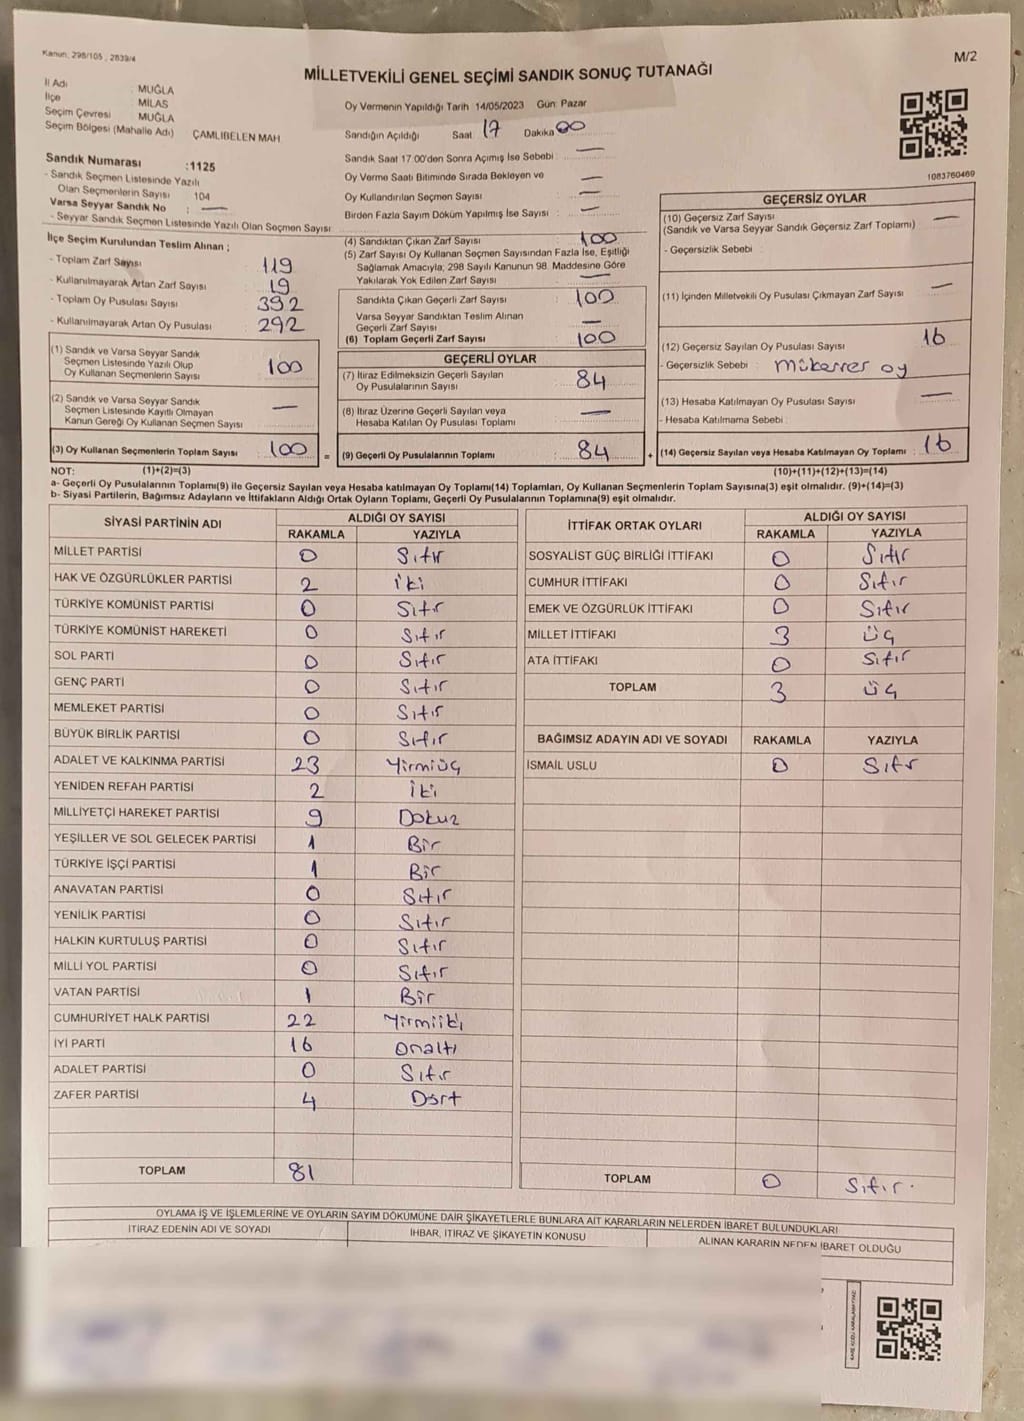 Kanun: 298/105 , 2839/4
M/2
MİLLETVEKİLİ GENEL SEÇİMİ SANDIK SONUÇ TUTANAĞI
İl Adı : MUĞLA
İlçe : MİLAS
Seçim Çevresi : MUĞLA
Seçim Bölgesi (Mahalle Adı) : ÇAMLIBELEN MAH
Sandık Numarası :1125
- Sandık Seçmen Listesinde Yazılı
Olan Seçmenlerin Sayısı : 104
Varsa Seyyar Sandık No : —
- Seyyar Sandık Seçmen Listesinde Yazılı Olan Seçmen Sayısı :
Oy Vermenin Yapıldığı Tarih 14/05/2023 Gün: Pazar
Sandığın Açıldığı Saat 17 Dakika 00
Sandık Saat 17.00'den Sonra Açımış İse Sebebi : —
Oy Verme Saati Bitiminde Sırada Bekleyen ve —
Oy Kullandırılan Seçmen Sayısı : —
Birden Fazla Sayım Döküm Yapılmış İse Sayısı : —
1083760469
İlçe Seçim Kurulundan Teslim Alınan ;
- Toplam Zarf Sayısı : 119
- Kullanılmayarak Artan Zarf Sayısı : 19
- Toplam Oy Pusulası Sayısı : 392
- Kullanılmayarak Artan Oy Pusulası : 292
(1) Sandık ve Varsa Seyyar Sandık
Seçmen Listesinde Yazılı Olup
Oy Kullanan Seçmenlerin Sayısı : 100
(2) Sandık ve Varsa Seyyar Sandık
Seçmen Listesinde Kayıtlı Olmayan
Kanun Gereği Oy Kullanan Seçmen Sayısı : —
(3) Oy Kullanan Seçmenlerin Toplam Sayısı : 100 =
(4) Sandıktan Çıkan Zarf Sayısı : 100
(5) Zarf Sayısı Oy Kullanan Seçmen Sayısından Fazla İse, Eşitliği
Sağlamak Amacıyla; 298 Sayılı Kanunun 98. Maddesine Göre
Yakılarak Yok Edilen Zarf Sayısı : —
Sandıkta Çıkan Geçerli Zarf Sayısı : 100
Varsa Seyyar Sandıktan Teslim Alınan
Geçerli Zarf Sayısı : —
(6) Toplam Geçerli Zarf Sayısı : 100
GEÇERLİ OYLAR
(7) İtiraz Edilmeksizin Geçerli Sayılan
Oy Pusulalarının Sayısı : 84
(8) İtiraz Üzerine Geçerli Sayılan veya
Hesaba Katılan Oy Pusulası Toplamı : —
(9) Geçerli Oy Pusulalarının Toplamı : 84 +
GEÇERSİZ OYLAR
(10) Geçersiz Zarf Sayısı : —
(Sandık ve Varsa Seyyar Sandık Geçersiz Zarf Toplamı)
- Geçersizlik Sebebi :
(11) İçinden Milletvekili Oy Pusulası Çıkmayan Zarf Sayısı : —
(12) Geçersiz Sayılan Oy Pusulası Sayısı : 16
- Geçersizlik Sebebi : mükerrer oy
(13) Hesaba Katılmayan Oy Pusulası Sayısı : —
- Hesaba Katılmama Sebebi :
(14) Geçersiz Sayılan veya Hesaba Katılmayan Oy Toplamı : 16
NOT: (1)+(2)=(3) (10)+(11)+(12)+(13)=(14)
a- Geçerli Oy Pusulalarının Toplamı(9) ile Geçersiz Sayılan veya Hesaba katılmayan Oy Toplamı(14) Toplamları, Oy Kullanan Seçmenlerin Toplam Sayısına(3) eşit olmalıdır. (9)+(14)=(3)
b- Siyasi Partilerin, Bağımsız Adayların ve İttifakların Aldığı Ortak Oyların Toplamı, Geçerli Oy Pusulalarının Toplamına(9) eşit olmalıdır.
SİYASİ PARTİNİN ADI ALDIĞI OY SAYISI
RAKAMLA YAZIYLA
MİLLET PARTİSİ 0 Sıfır
HAK VE ÖZGÜRLÜKLER PARTİSİ 2 iki
TÜRKİYE KOMÜNİST PARTİSİ 0 Sıfır
TÜRKİYE KOMÜNİST HAREKETİ 0 Sıfır
SOL PARTİ 0 Sıfır
GENÇ PARTİ 0 Sıfır
MEMLEKET PARTİSİ 0 Sıfır
BÜYÜK BİRLİK PARTİSİ 0 Sıfır
ADALET VE KALKINMA PARTİSİ 23 Yirmiüç
YENİDEN REFAH PARTİSİ 2 iki
MİLLİYETÇİ HAREKET PARTİSİ 9 Dokuz
YEŞİLLER VE SOL GELECEK PARTİSİ 1 Bir
TÜRKİYE İŞÇİ PARTİSİ 1 Bir
ANAVATAN PARTİSİ 0 Sıfır
YENİLİK PARTİSİ 0 Sıfır
HALKIN KURTULUŞ PARTİSİ 0 Sıfır
MİLLİ YOL PARTİSİ 0 Sıfır
VATAN PARTİSİ 1 Bir
CUMHURİYET HALK PARTİSİ 22 Yirmiiki
İYİ PARTİ 16 Onaltı
ADALET PARTİSİ 0 Sıfır
ZAFER PARTİSİ 4 Dört
TOPLAM 81
İTTİFAK ORTAK OYLARI ALDIĞI OY SAYISI
RAKAMLA YAZIYLA
SOSYALİST GÜÇ BİRLİĞİ İTTİFAKI 0 Sıfır
CUMHUR İTTİFAKI 0 Sıfır
EMEK VE ÖZGÜRLÜK İTTİFAKI 0 Sıfır
MİLLET İTTİFAKI 3 üç
ATA İTTİFAKI 0 Sıfır
TOPLAM 3 üç
BAĞIMSIZ ADAYIN ADI VE SOYADI RAKAMLA YAZIYLA
İSMAİL USLU 0 Sıfır
TOPLAM 0 Sıfır.
OYLAMA İŞ VE İŞLEMLERİNE VE OYLARIN SAYIM DÖKÜMÜNE DAİR ŞİKAYETLERLE BUNLARA AİT KARARLARIN NELERDEN İBARET BULUNDUKLARI
İTİRAZ EDENİN ADI VE SOYADI İHBAR, İTİRAZ VE ŞİKAYETİN KONUSU ALINAN KARARIN NEDEN İBARET OLDUĞU